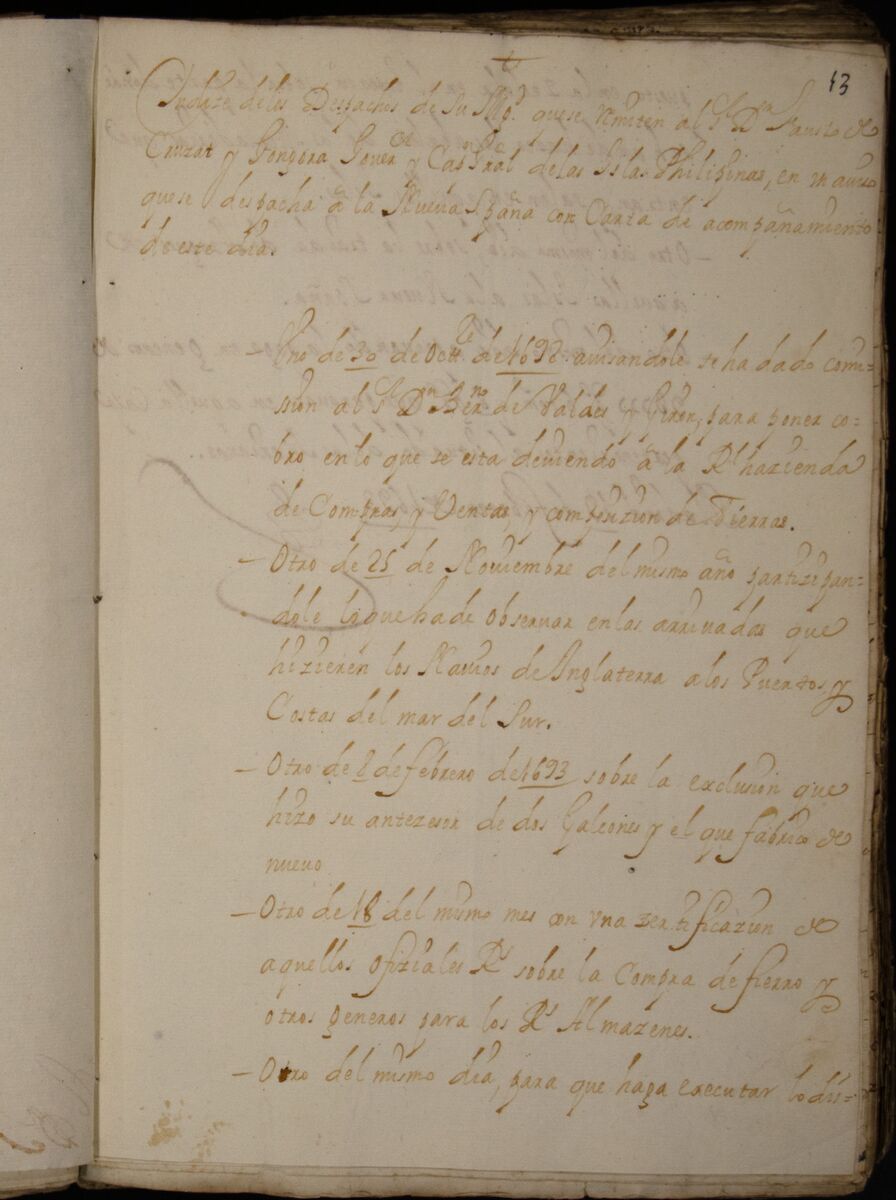 13
Yndize delos Despachos de Su Mgd. que se remiten al Sr Dn Fausto de
Cruzat y Gongora Gover.or y Capn Gral de las Islas Philipinas, en vn auiso
que se despacha â la Nueua España con Carta de acompañamiento
de este dia.
— Vno de 30 de Octre de 1692 auisandole se ha dado comi-
ssion al Sr Dn Berno de Valdes y Giron, para poner co-
bro en lo que se esta deuiendo â la Rl hazienda
de Compras, y Ventas, y composizion de Tierras.
— Otro de 25 de Nouiembre del mismo año partizipan-
dole lo que ha de obseruar en las arriuadas que
hizieren los Nauios de Inglaterra a los Puertos y
Costas del mar del Sur.
— Otro de 2 de febrero de 1693 sobre la exclusion que
hizo su antezesor de dos Galeones y el que fabrico de
nueuo
— Otro de 18 del mismo mes con vna zertificazion de
aquellos ofiziales Rs sobre la Compra de fierro y
otros generos para los Rs Almazenes.
— Otro del mismo dia, para que haga executar lo dis-